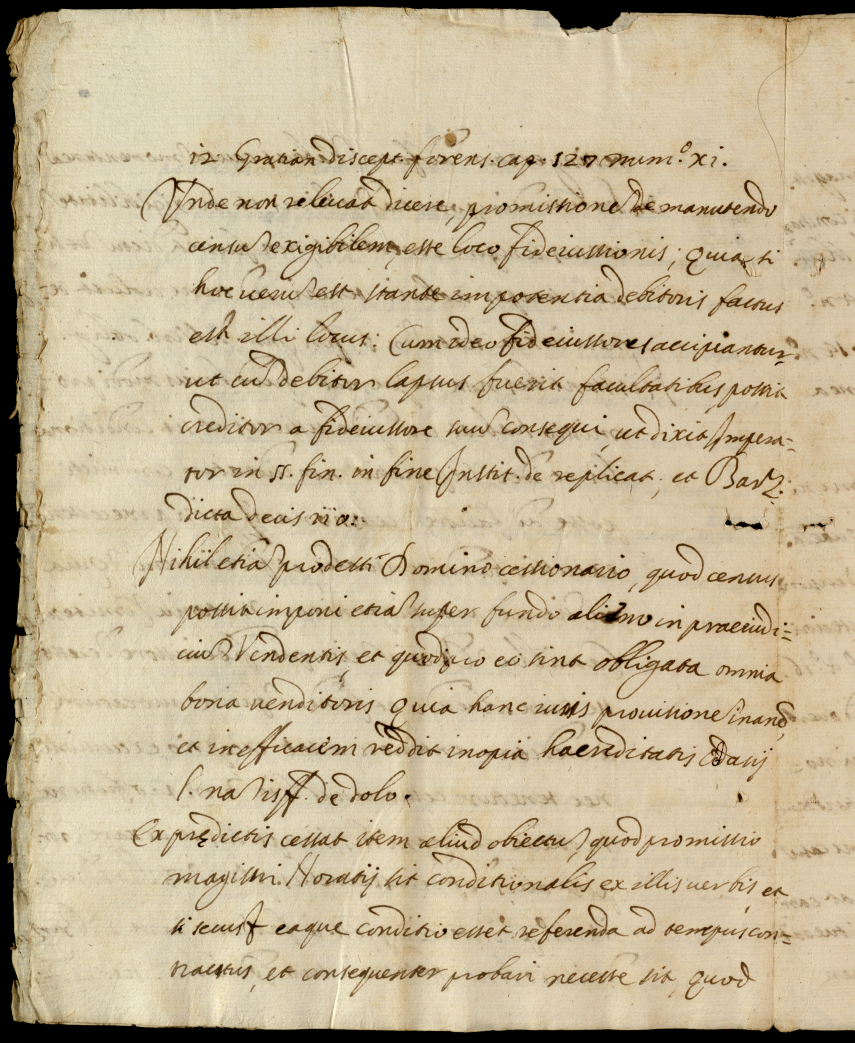 12. Gratian discept. forens. cap. 127 num.º xi.
Unde non relevat dicere, promissione de manutendo
censu exigibilem, esse loco fideiussionis; quia si
hoc veru est stante impotentia debitoris factus
est illi locus: Cum ideo fideiussores accipiantur,
ut cu debitor lapsus fuerit facultatibus possit
creditor a fideiussore suu consequi, ut dixit Impera=
tor in §. fin. in fine Instit. de replicat. et
dicta decis.
Nihil etia prodest Domino cessionario, quod census
possit imponi etia super fundo alieno in praeiudi=
ciu Vendentis, et quod pro eo sint obligata omnia
bona venditoris quia hanc iuris provisione inane,
et inefficacem reddit inopia haereditatis
l. nam is ff. de dolo.
Ex prędictis cessat item aliud obiectu, quod promissio
magistri Horatij sit conditionalis ex illis verbis, et
si secus eaque conditio esset referenda ad tempus con=
tractus, et consequenter probari necesse sit, quod